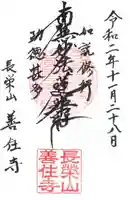 令和二年十一月二十八日
如説修行
南無妙法蓮華経
功徳甚多
長榮山 善住寺
長榮山
善住寺